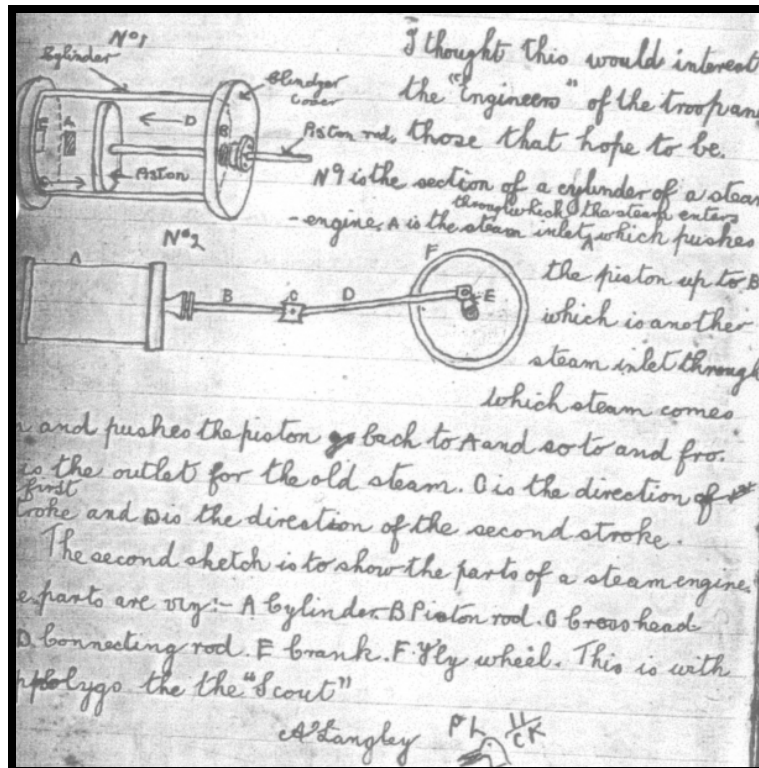 Nº1
Cylinder
Clindyer
cover
D
B
Piston rod
Piston
I thought this would interest
the "Engineers" of the troop and
those that hope to be.
Nº1 is the section of a cylinder of a steam
through which the steam enters
-engine. A is the steam inlet, which pushes
Nº2
A
B
C
D
E
F
the piston up to B
which is another
steam inlet through
which steam comes
in and pushes the piston back to A and so to and fro.
is the outlet for the old steam. C is the direction of
first
stroke and D is the direction of the second stroke.
The second sketch is to show the parts of a steam engine.
parts are viz:- A Cylinder. B Piston rod. C Cross head
D. Connecting rod. E Crank. F. Fly wheel. This is with
the the "Scout"
A Langley
PL